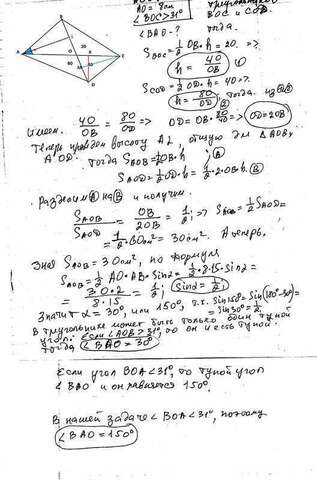 AD = 8см
<BOC>31°
BOC и COD.
<BAD - ?
Тогда.
S_BOC = 1/2 OB·h = 20 =>
h = 40/OB ①
S_COD = 1/2 OD·h = 40 =>
h = 80/OD ② из ①②
Имеем. 40/OB = 80/OD => OD = OB·80/40 => OD = 2OB
Теперь проведем высоту AL, общую для ΔAOB и
AOD. Тогда S_AOB = 1/2 OB·h (A)
S_AOD = 1/2 OD·h = 1/2·2·OB·h (B)
Разделим (A) на (B) и получим.
S_AOB/S_AOD = OB/2OB = 1/2 => S_AOB = 1/2 S_AOD =
= 1/2·60см² = 30см². А теперь,
Зная S_AOB = 30см², по формуле
S_AOB = 1/2 AO·AB·sinα = 1/2·8·15·sinα
= 30·2/8·15 = 1/2; sinα = 1/2
Значит α = 30°, или 150°, т.к. sin150° = sin(180°-30°)
= sin30° = 1/2.
В треугольнике может быть только один тупой
угол. Если <AOB>31°, то он и есть тупой.
Тогда <BAO = 30°
Если угол BOA<31°, то тупой угол
<BAO и он равняется 150°.
В нашей задаче <BOA<31°, поэтому
<BAO = 150°